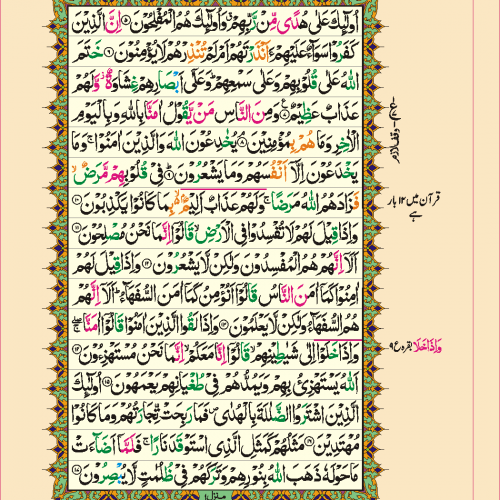 اُولٰٓئِكَ عَلٰى هُدًى مِّنْ رَّبِّهِمْ وَاُولٰٓئِكَ هُمُ الْمُفْلِحُوْنَ ۝۵ اِنَّ الَّذِيْنَ
كَفَرُوْا سَوَآءٌ عَلَيْهِمْ ءَاَنْذَرْتَهُمْ اَمْ لَمْ تُنْذِرْهُمْ لَا يُؤْمِنُوْنَ ۝۶ خَتَمَ
اللّٰهُ عَلٰى قُلُوْبِهِمْ وَعَلٰى سَمْعِهِمْ ؕ وَعَلٰٓى اَبْصَارِهِمْ غِشَاوَةٌ ؗ وَّلَهُمْ
عَذَابٌ عَظِيْمٌ ۝۷ وَمِنَ النَّاسِ مَنْ يَّقُوْلُ اٰمَنَّا بِاللّٰهِ وَبِالْيَوْمِ
الْاٰخِرِ وَمَا هُمْ بِمُؤْمِنِيْنَ ۝۸ يُخٰدِعُوْنَ اللّٰهَ وَالَّذِيْنَ اٰمَنُوْا ۚ وَمَا
يَخْدَعُوْنَ اِلَّآ اَنْفُسَهُمْ وَمَا يَشْعُرُوْنَ ۝۹ فِيْ قُلُوْبِهِمْ مَّرَضٌ ۙ
فَزَادَهُمُ اللّٰهُ مَرَضًا ۚ وَلَهُمْ عَذَابٌ اَلِيْمٌۢ ۙ بِمَا كَانُوْا يَكْذِبُوْنَ ۝۱۰
وَاِذَا قِيْلَ لَهُمْ لَا تُفْسِدُوْا فِي الْاَرْضِ ۙ قَالُوْٓا اِنَّمَا نَحْنُ مُصْلِحُوْنَ ۝۱۱
اَلَآ اِنَّهُمْ هُمُ الْمُفْسِدُوْنَ وَلٰكِنْ لَّا يَشْعُرُوْنَ ۝۱۲ وَاِذَا قِيْلَ لَهُمْ
اٰمِنُوْا كَمَآ اٰمَنَ النَّاسُ قَالُوْٓا اَنُؤْمِنُ كَمَآ اٰمَنَ السُّفَهَآءُ ؕ اَلَآ اِنَّهُمْ
هُمُ السُّفَهَآءُ وَلٰكِنْ لَّا يَعْلَمُوْنَ ۝۱۳ وَاِذَا لَقُوا الَّذِيْنَ اٰمَنُوْا قَالُوْٓا اٰمَنَّا ۚۖ
وَاِذَا خَلَوْا اِلٰى شَيٰطِيْنِهِمْ ۙ قَالُوْٓا اِنَّا مَعَكُمْ ۙ اِنَّمَا نَحْنُ مُسْتَهْزِءُوْنَ ۝۱۴
اَللّٰهُ يَسْتَهْزِئُ بِهِمْ وَيَمُدُّهُمْ فِيْ طُغْيَانِهِمْ يَعْمَهُوْنَ ۝۱۵ اُولٰٓئِكَ
الَّذِيْنَ اشْتَرَوُا الضَّلٰلَةَ بِالْهُدٰى ۪ فَمَا رَبِحَتْ تِّجَارَتُهُمْ وَمَا كَانُوْا
مُهْتَدِيْنَ ۝۱۶ مَثَلُهُمْ كَمَثَلِ الَّذِي اسْتَوْقَدَ نَارًا ۚ فَلَمَّآ اَضَآءَتْ
مَا حَوْلَهٗ ذَهَبَ اللّٰهُ بِنُوْرِهِمْ وَتَرَكَهُمْ فِيْ ظُلُمٰتٍ لَّا يُبْصِرُوْنَ ۝۱۸
منزل۱
وقف لازم
قرآن میں ۱۲ بار
ہے
وَاِذَا خَلَا بقره ع ۹